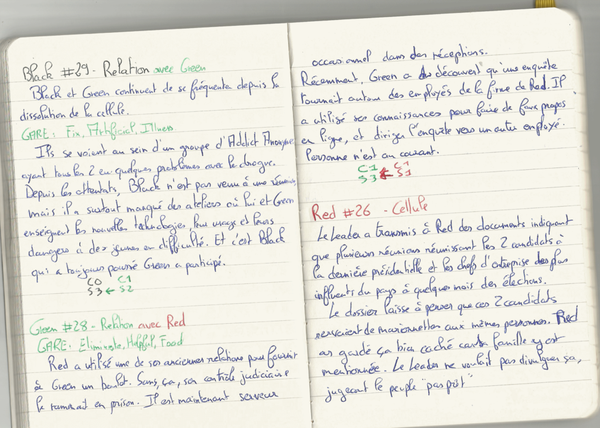 Black #29 - Relation avec Green
Black et Green continuent de se fréquenter depuis la
dissolution de la cellule.
GARE: Fix, Artificial, Illness
Ils se voient au sein d'un groupe d'Addict Anonyme,
ayant tous les 2 eu quelques problèmes avec la drogue.
Depuis les attentats, Black n'est pas venu à une réunion,
mais il a surtout manqué des ateliers où lui et Green
enseignent les nouvelles technologies, leur usages et leurs
dangers à des jeunes en difficulté. Et c'est Black
qui a toujours poussé Green à participer.
C0 C1
S3 ← S2
Green #28 - Relation avec Red
GARE: Eliminate, Helpful, Food
Red a utilisé une de ses anciennes relations pour fournir
à Green un boulot. Sans ça, son contrôle judiciaire
le ramenait en prison. Il est maintenant serveur
occasionnel dans des réceptions.
Récemment, Green a découvert qu'une enquête
tournait autour des employés de la firme de Red. Il
a utilisé ses connaissances pour faire de faux propos
en ligne, et diriger l'enquête vers un autre employé.
Personne n'est au courant.
C1 C1
S3 ← S1
Red #26 - Cellule
Le Leader a transmis à Red des documents indiquant
que plusieurs réunions réunissant les 2 candidats à
la dernière présidentielle et les chefs d'entreprise des plus
influents du pays à quelques mois des élections.
Le dossier laisse à penser que ces 2 candidats
servaient de marionnettes aux mêmes personnes. Red
a gardé ça bien caché car sa famille y est
mentionnée. Le Leader ne voulait pas divulguer ça,
jugeant le peuple "pas prêt"